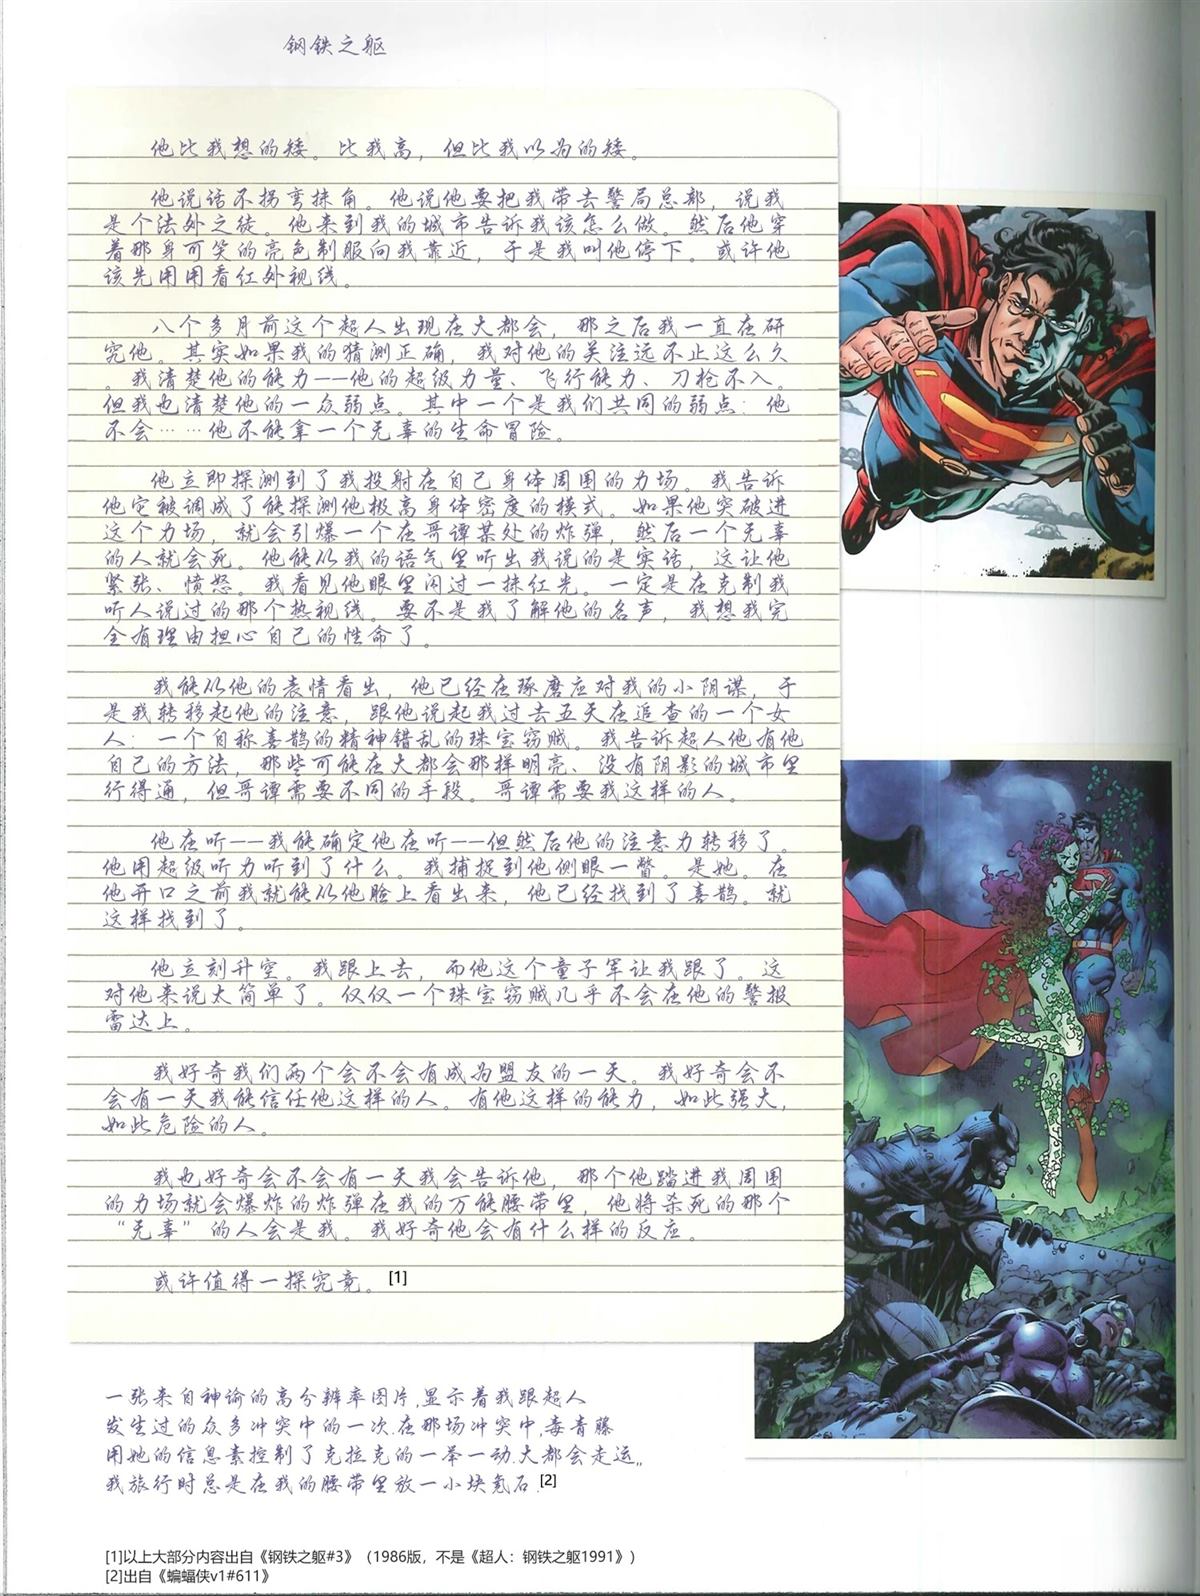 钢铁之躯
他比我想的矮。比我高，但比我以为的矮。
他说话不拐弯抹角。他说他要把我带去警局总部，说我
是个法外之徒。他来到我的城市告诉我该怎么做。然后他穿
着那身可笑的亮色制服向我靠近，于是我叫他停下。或许他
该先用用看红外视线。
八个多月前这个超人出现在大都会，那之后我一直在研
究他。其实如果我的猜测正确，我对他的关注远不止这么久
。我清楚他的能力——他的超级力量、飞行能力、刀枪不入。
但我也清楚他的一众弱点。其中一个是我们共同的弱点：他
不会……他不能拿一个无辜的生命冒险。
他立即探测到了我投射在自己身体周围的力场。我告诉
他它被调成了能探测他极高身体密度的模式。如果他突破进
这个力场，就会引爆一个在哥谭某处的炸弹，然后一个无辜
的人就会死。他能从我的语气里听出我说的是实话，这让他
紧张、愤怒。我看见他眼里闪过一抹红光。一定是在克制我
听人说过的那个热视线。要不是我了解他的名声，我想我完
全有理由担心自己的性命了。
我能从他的表情看出，他已经在琢磨应对我的小阴谋，于
是我转移起他的注意，跟他说起我过去五天在追查的一个女
人：一个自称喜鹊的精神错乱的珠宝窃贼。我告诉超人他有他
自己的方法，那些可能在大都会那样明亮、没有阴影的城市里
行得通，但哥谭需要不同的手段。哥谭需要我这样的人。
他在听——我能确定他在听——但然后他的注意力转移了。
他用超级听力听到了什么。我捕捉到他侧眼一瞥。是她。在
他开口之前我就能从他脸上看出来，他已经找到了喜鹊。就
这样找到了。
他立刻升空。我跟上去，而他这个童子军让我跟了。这
对他来说太简单了。仅仅一个珠宝窃贼几乎不会在他的警报
雷达上。
我好奇我们两个会不会有成为盟友的一天。我好奇会不
会有一天我能信任他这样的人。有他这样的能力，如此强大，
如此危险的人。
我也好奇会不会有一天我会告诉他，那个他踏进我周围
的力场就会爆炸的炸弹在我的万能腰带里，他将杀死的那个
“无辜”的人会是我。我好奇他会有什么样的反应。
或许值得一探究竟。[1]
一张来自神谕的高分辨率图片,显示着我跟超人
发生过的众多冲突中的一次.在那场冲突中,毒青藤
用她的信息素控制了克拉克的一举一动.大都会走运,,
我旅行时总是在我的腰带里放一小块氪石.[2]
[1]以上大部分内容出自《钢铁之躯#3》（1986版，不是《超人：钢铁之躯1991》）
[2]出自《蝙蝠侠v1#611》